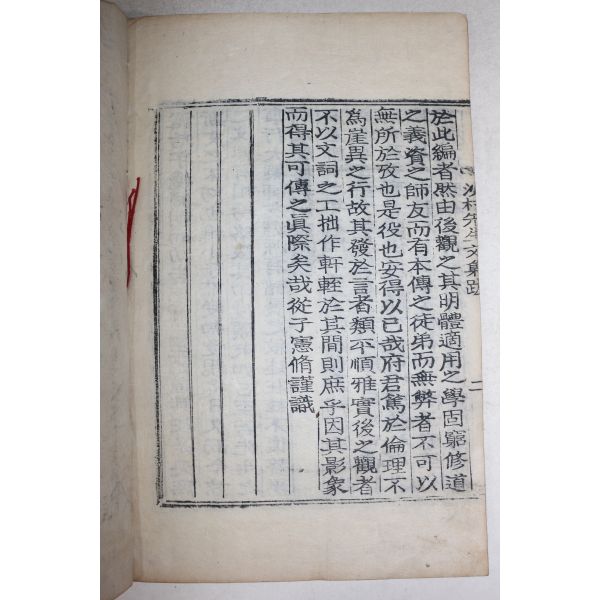 村先生文集跋 二
於此編者然由後觀之其明體適用之學固窮修道
之義資之師友而有本傳之徒弟而無弊者不可以
無所於攷也是役也安得以已哉府君篤於倫理不
爲崖異之行故其發於言者類平順雅實後之觀者
不以文詞之工拙作軒輊於其間則庶乎因其影象
而得其可傳之眞際矣哉從子憲脩謹識